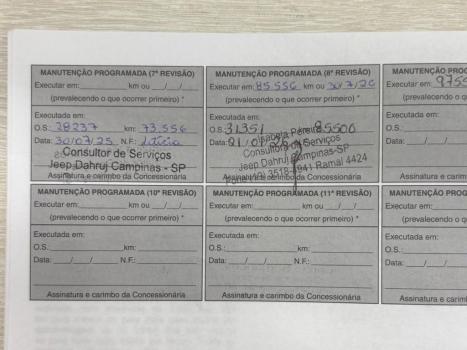 MANUTENÇÃO PROGRAMADA (7ª REVISÃO)
Executar em: km ou __/__/__
(prevalecendo o que ocorrer primeiro) *
Executada em:
O.S.: 28237 km: 73.556
Data: 30/07/25 N.F.: Letícia
Consultor de Serviços
Jeep Dahruj Campinas - SP
Assinatura e carimbo da Concessionária
MANUTENÇÃO PROGRAMADA (8ª REVISÃO)
Executar em: 85.556 km ou 30/7/26
(prevalecendo o que ocorrer primeiro) *
Executada em:
O.S.: 31351 85500
Pereira
Data: 21/0
Consultora de Serviços
Jeep Dahruj Campinas-SP
Ramal 4424
Assinatura e carimbo da Concessionária
MANUTENÇÃO PROG
Executar em: 975
(prevalecendo o q
Executada em:
O.S.:
Data: __/__/
Assinatura e carim
MANUTENÇÃO PROGRAMADA (10ª REVISÃO)
Executar em: km ou __/__/__
(prevalecendo o que ocorrer primeiro) *
Executada em:
O.S.: km:
Data: __/__/__ N.F.:
Assinatura e carimbo da Concessionária
MANUTENÇÃO PROGRAMADA (11ª REVISÃO)
Executar em: km ou __/__/__
(prevalecendo o que ocorrer primeiro) *
Executada em:
O.S.: km:
Data: __/__/__ N.F.:
Assinatura e carimbo da Concessionária
MANUTENÇÃO PROG
Executar em:
(prevalecendo o q
Executada em:
O.S.:
Data: __/__/
Assinatura e carim